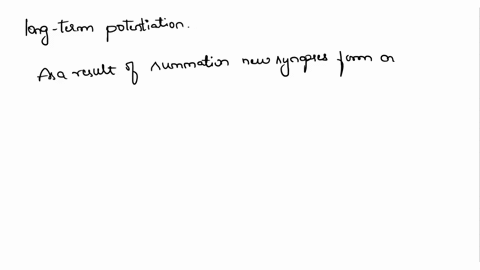 long-term potentiation.
As a result of summation new synapses form on